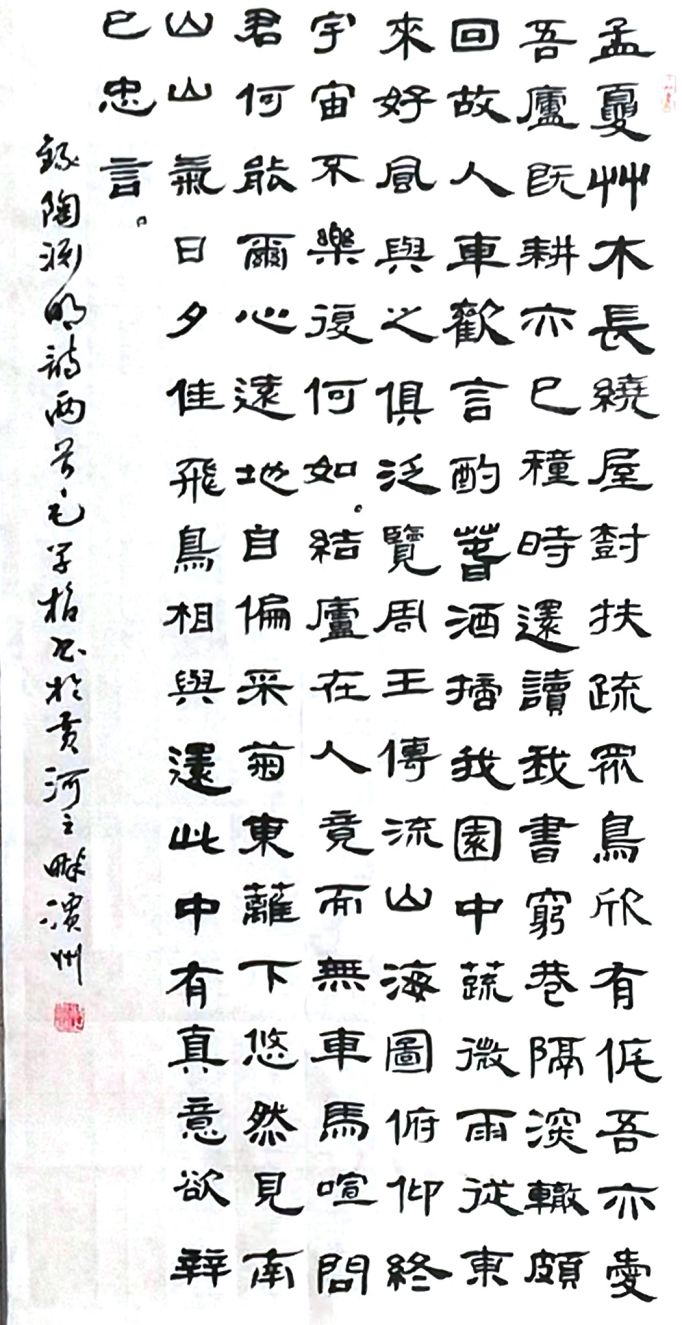 孟夏艸木長繞屋尌扶疏眾鳥欣有侂吾亦愛
吾廬既耕亦已穜時還讀我書窮巷隔深轍頗
回故人車歡言酌萅酒擿我園中蔬微雨從東
來好風與之俱泛覽周王傳流山海圖俯仰終
宇宙不樂復何如。結廬在人竟而無車馬喧問
君何能爾心遠地自偏采菊東蘺下悠然見南
山山氣日夕佳飛鳥相與還此中有真意欲辡
已忠言。
錄陶渊明詩兩首毛学栢书於黄河之畔濱州